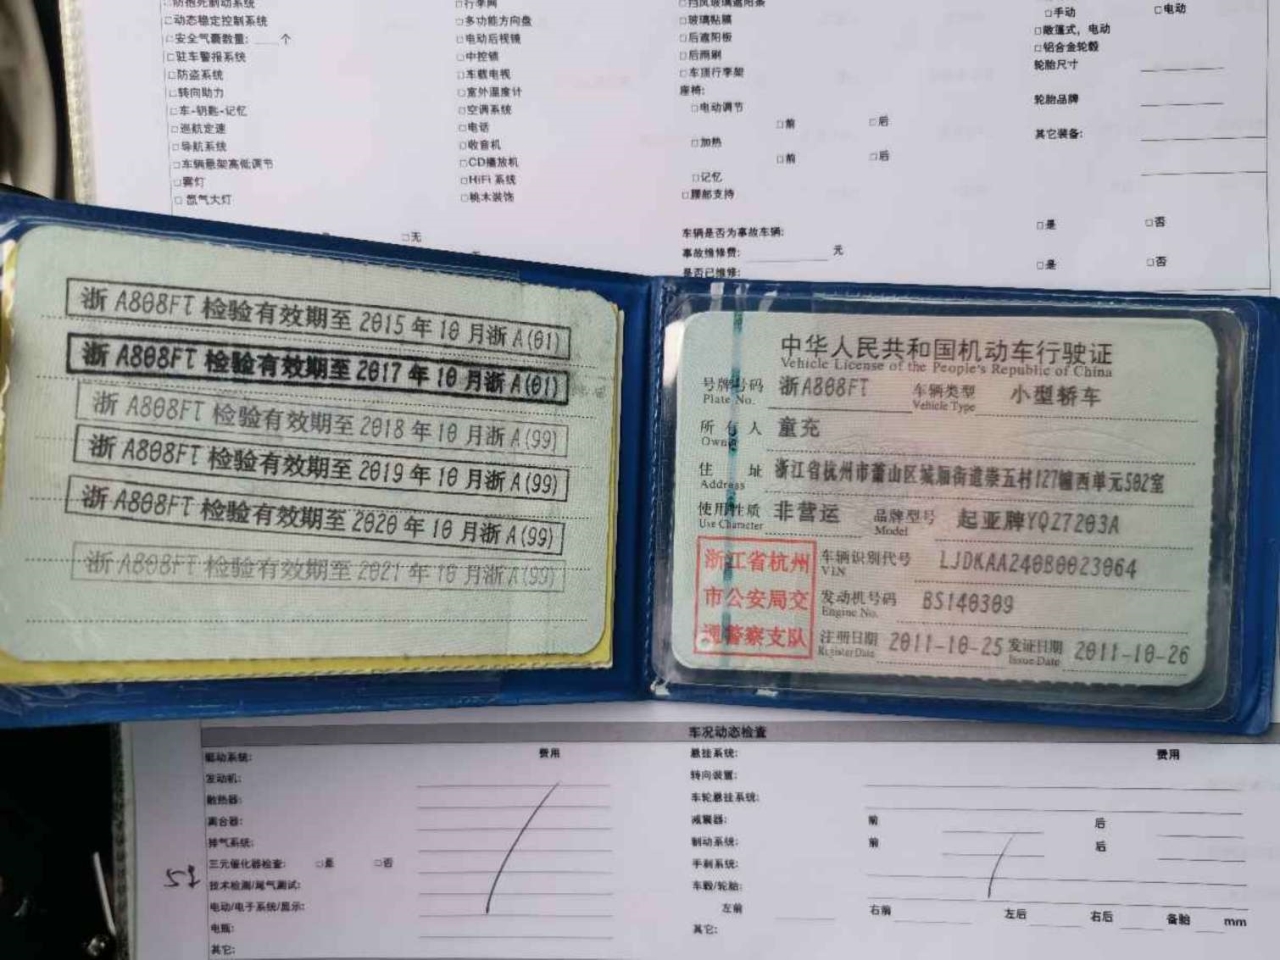 □防抱死制动系统
□动态稳定控制系统
□安全气囊数量:____个
□驻车警报系统
□防盗系统
□转向助力
□车-钥匙-记忆
□巡航定速
□导航系统
□车辆悬架高低调节
□雾灯
□氙气大灯
□行李网
□多功能方向盘
□电动后视镜
□中控锁
□车载电视
□室外温度计
□空调系统
□电话
□收音机
□CD播放机
□HiFi 系统
□桃木装饰
□无
□挡风玻璃遮阳条
□玻璃贴膜
□后遮阳板
□后雨刷
□车顶行李架
座椅:
□电动调节
□前 □后
□加热
□前 □后
□记忆
□腰部支持
车辆是否为事故车辆: □是 □否
事故维修费:________元
是否已维修: □是 □否
□手动 □电动
□敞篷式，电动
□铝合金轮毂
轮胎尺寸
轮胎品牌
其它装备:
浙 A808FT 检验有效期至 2015 年 10 月浙 A(01)
浙 A808FT 检验有效期至 2017 年 10 月浙 A(01)
浙 A808FT 检验有效期至 2018 年 10 月浙 A(99)
浙 A808FT 检验有效期至 2019 年 10 月浙 A(99)
浙 A808FT 检验有效期至 2020 年 10 月浙 A(99)
浙 A808FT 检验有效期至 2021 年 10 月浙 A(99)
中华人民共和国机动车行驶证
Vehicle License of the People's Republic of China
号牌号码 浙A808FT 车辆类型 小型轿车
Plate No. Vehicle Type
所有人 童充
Owner
住址 浙江省杭州市萧山区城厢街道崇五村127幢西单元502室
Address
使用性质 非营运 品牌型号 起亚牌YQZ7203A
Use Character Model
浙江省杭州
市公安局交
通警察支队
车辆识别代号 LJDKAA240B0023064
VIN
发动机号码 BS140309
Engine No.
注册日期 2011-10-25 发证日期 2011-10-26
Register Date Issue Date
车况动态检查
驱动系统: 费用
发动机:
散热器:
离合器:
排气系统:
三元催化器检查: □是 □否
技术检测/尾气测试:
电动/电子系统/显示:
电瓶:
其它:
悬挂系统: 费用
转向装置:
车轮悬挂系统:
减震器: 前 后
制动系统: 前 后
手刹系统:
车毂/轮胎:
左前 右前 左后 右后 备胎 mm
其它: